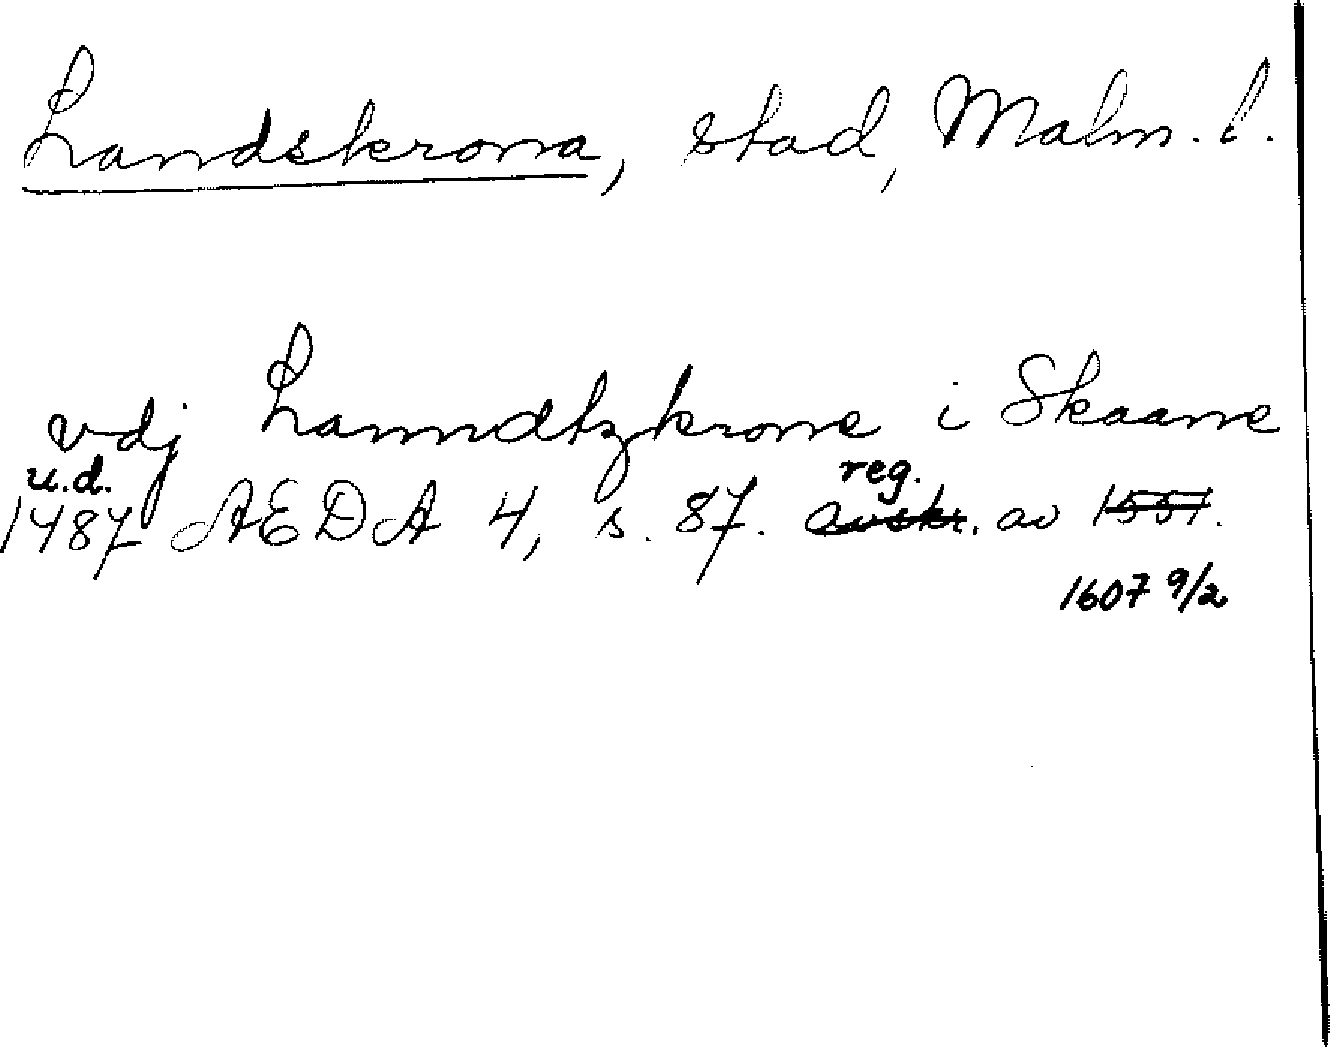 Landskrona, stad, Malm. l.
vdj Lanndtzkrone i Skaane
u.d. reg.
1487 AEDA 4, s. 87. avskr. av 1551.
1607 9/2